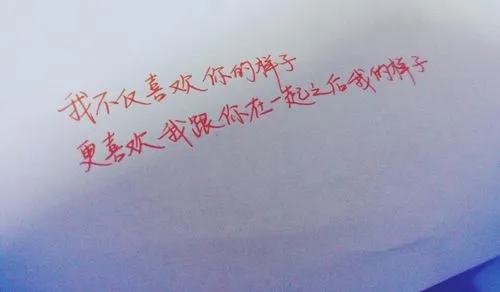 我不仅喜欢你的样子
更喜欢我跟你在一起之后我的样子